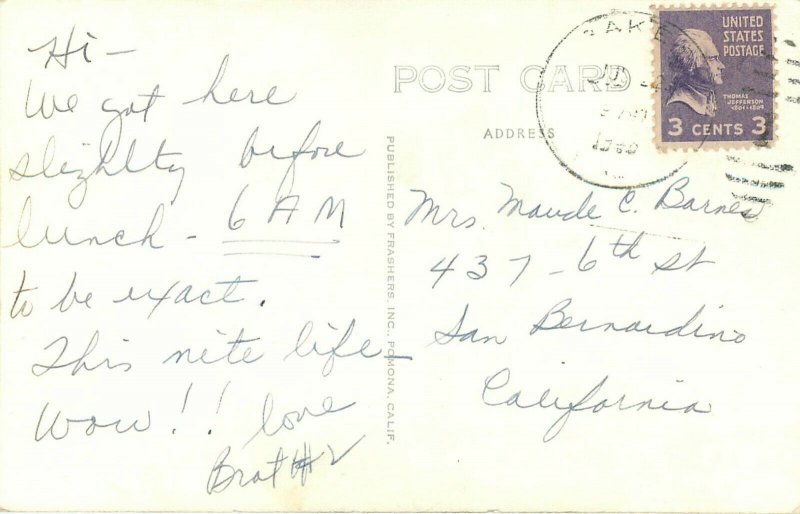 Hi -
We got here
slighlty before
lunch - 6 AM
to be exact.
This nite life -
Wow!! love
Brat #2
POST CARD
ADDRESS
PUBLISHED BY FRASHERS, INC., POMONA, CALIF.
UNITED
STATES
POSTAGE
THOMAS
JEFFERSON
1801-1809
3 CENTS 3
Mrs. Maude C. Barnes
437 - 6th st
San Bernardino
California